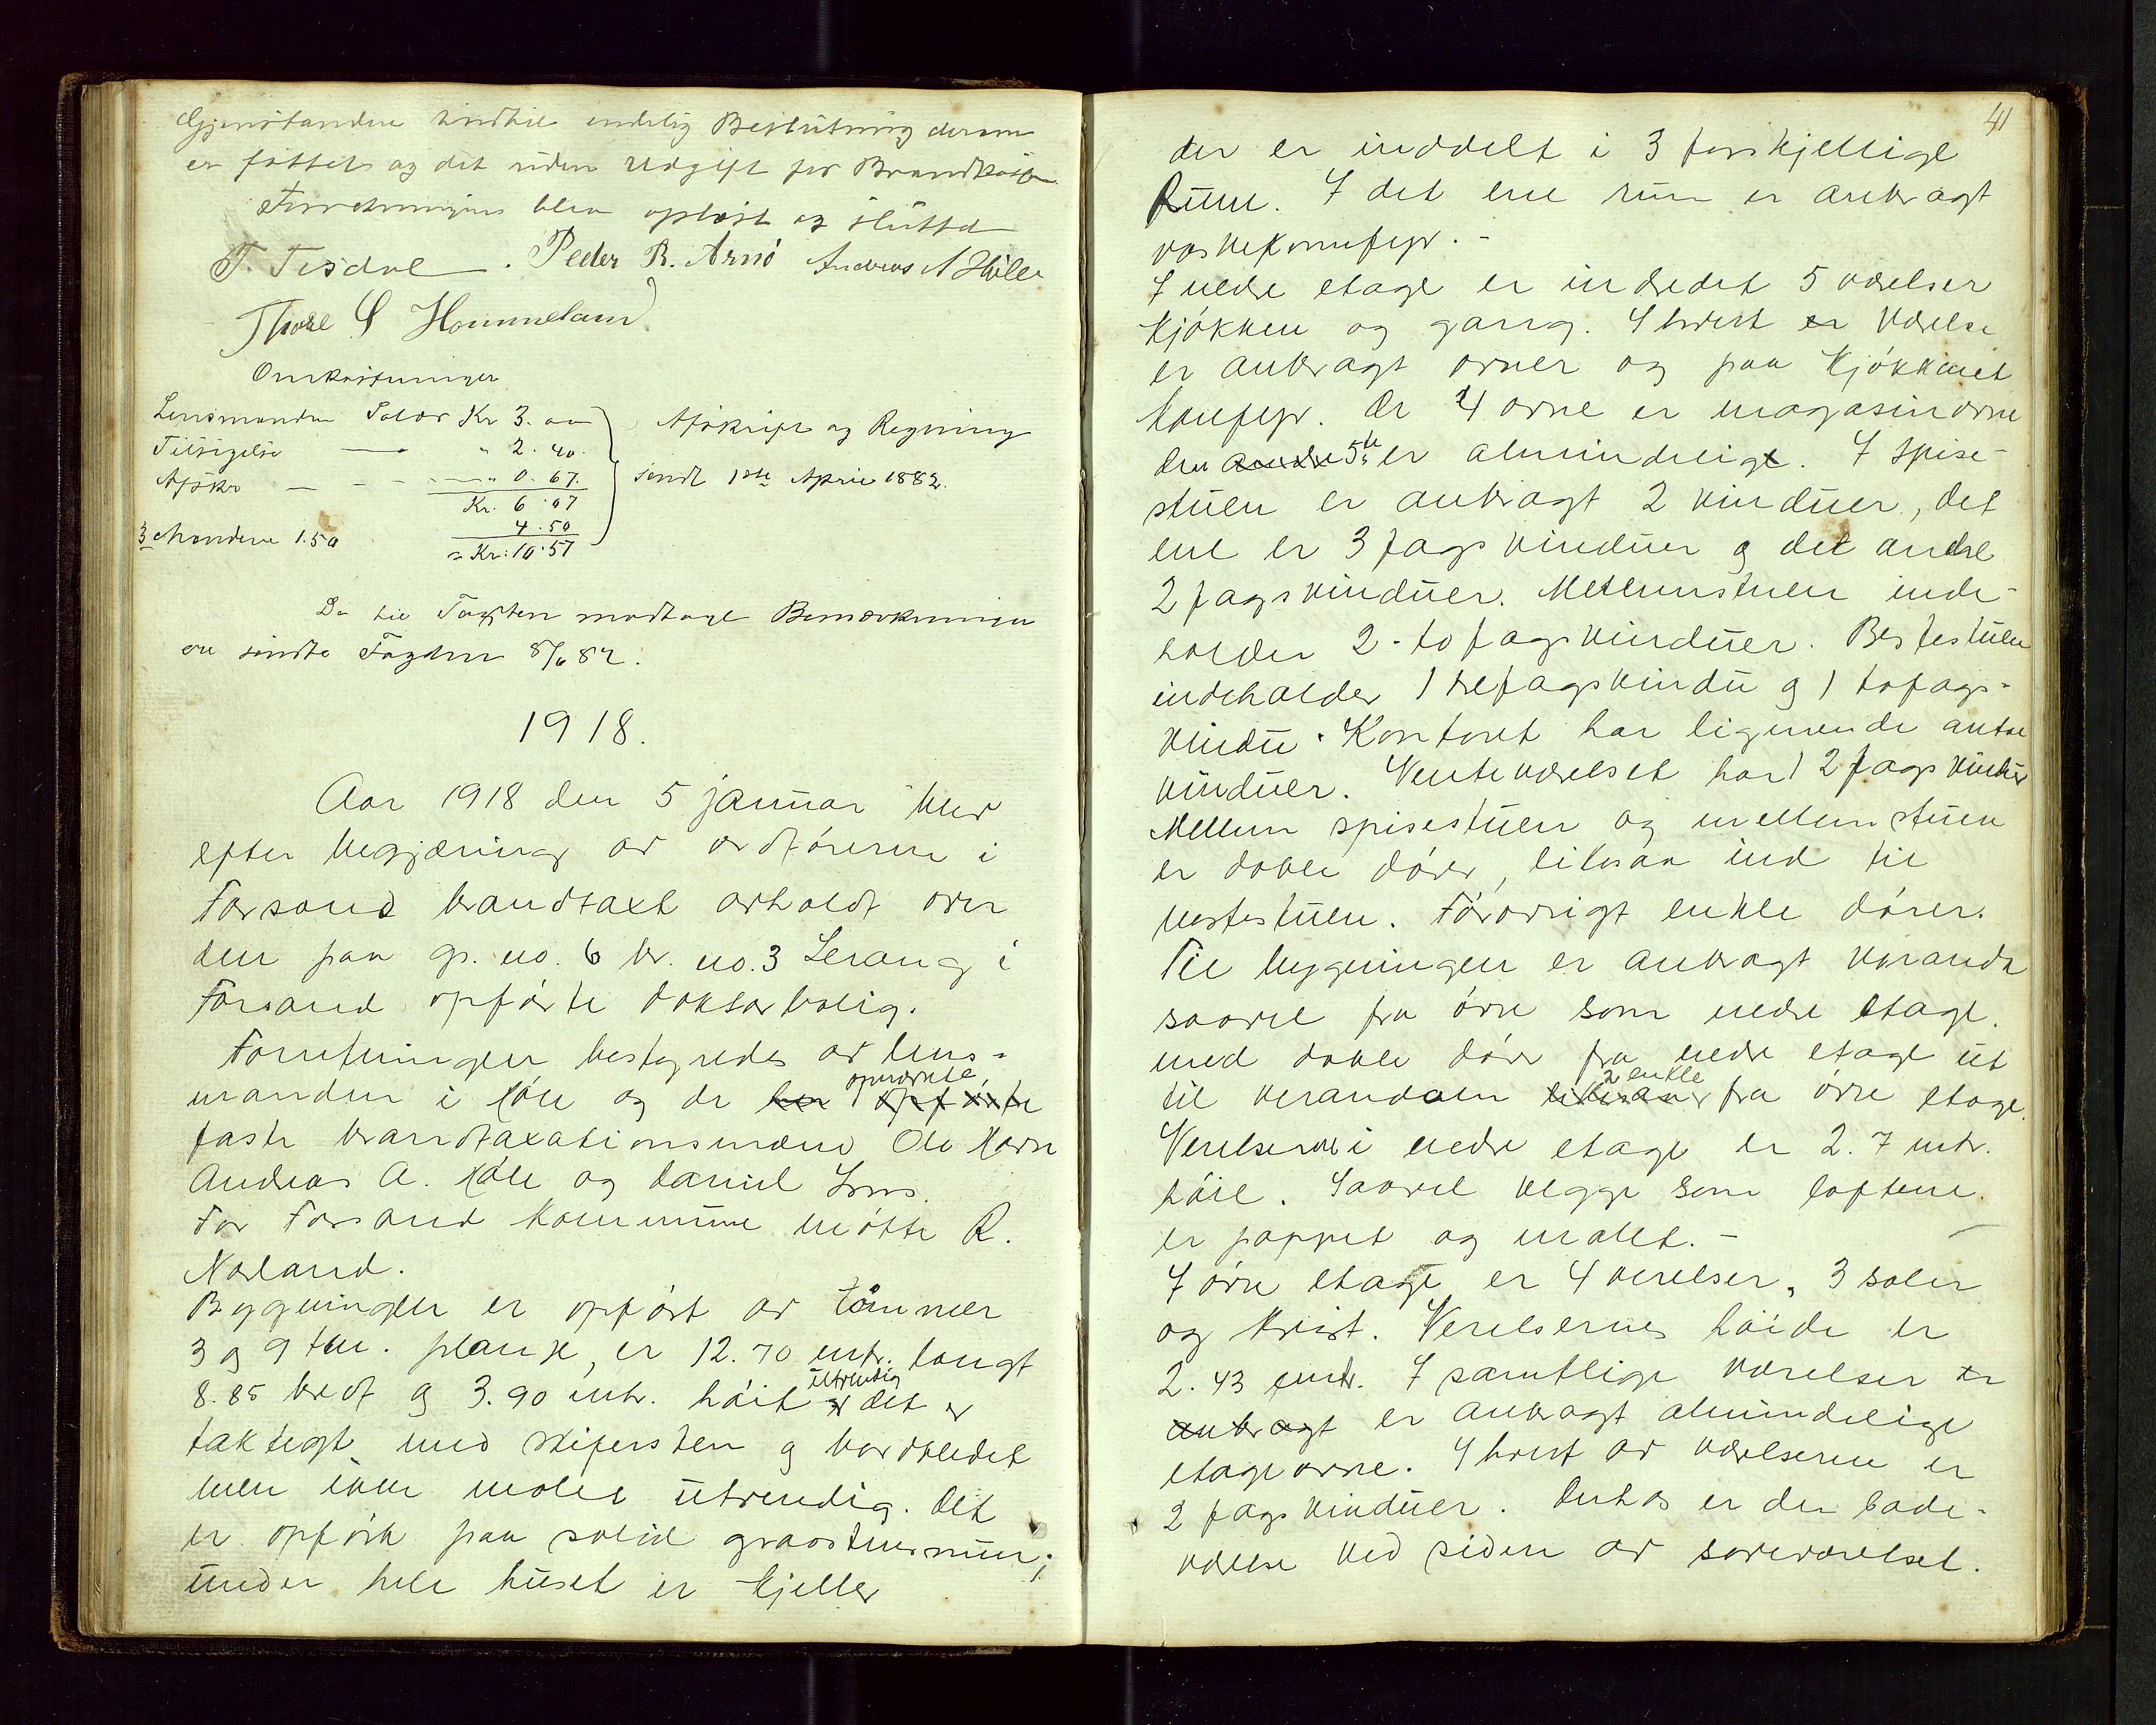 Gjenstandene indtil endelig Beslutning derom
er fattet og det uden Udgift for Brandkassen.
Forretningen blev oplæst og sluttet
T. Tisdal. Peder B. Arnö Andreas A Høle
Thore S Hommeland
Omkostninger
Lensmanden Salær Kr 3. 00
Tilsigelse — " 2. 40.
Afskr — — " 0. 67.
Kr. 6.07
3 Mændene 1.50 4.50
= Kr: 10.57
Afskrift og Regning
sendt 1ste April 1882.
De til Taxten modtagne Bemærkninger
er sendte Fogden 8/6 82.
1918.
Aar 1918 den 5 januar blev
efter begjæring av ordføreren i
Forsand brandtaxt avholdt over
den paa gr. no. 6 br. no. 3 Lerang i
Forsand opførte doktorbolig.
Forretningen bestyredes av lens-
manden i Høle og de opnævnte
faste brandtaxationsmænd Ole
Andreas A. Høle og Daniel
For Forsand kommune møtte R.
Norland.
Bygningen er opført av tømmer
3 og 9 tm. planke, er 12.70 mtr. langt
8.85 bredt og 3.90 mtr. høit utvendig det er
taktegt med skifersten og bordkledet
men ikke malet utvendig. Det
er opført paa solid graastensmur;
under hele huset er kjeller
41
der er inddelt i 3 forskjellige
Rum. I det ene rum er anbragt
vaskekomfyr. -
I nedre etage er indredet 5 værelser
kjøkken og gang. I hvert er Værelse
er anbragt ovner og paa kjøkkenet
komfyr. De 4 ovne er magasinovne
den andre 5te er almindelig. I spise-
stuen er anbragt 2 vinduer, det
ene er 3 fags vinduer og det andre
2 fags vinduer. Mellemstuen inde-
holder 2 - to fags vinduer. Bestestuen
indeholder 1 trefagsvindu og 1 tofags-
vindu. Kontoret har lignende antal
vinduer. Venteværelset har 1 2 fags vindu
Mellem spisestuen og mellemstuen
er doble dører, likesaa ind til
bestestuen. Forøvrigt enkle dører.
Til bygningen er anbragt veranda
saavel fra øvre som nedre etage.
med doble døre fra nedre etage ut
til verandaen likesaa 2 enkle fra øvre etage.
Verelserne i nedre etage er 2.7 mtr.
høie. Saavel vegge som loftene
er pappet og malet. -
I øvre etage er 4 verelser, 3 saler
og kvist. Verelsernes høide er
2.43 mtr. I samtlige værelser er
anbragt er anbragt almindelige
etageovne. I hvert av værelserne er
2 fags vinduer. Derhos er der bade-
værelse ved siden av soveværelset.